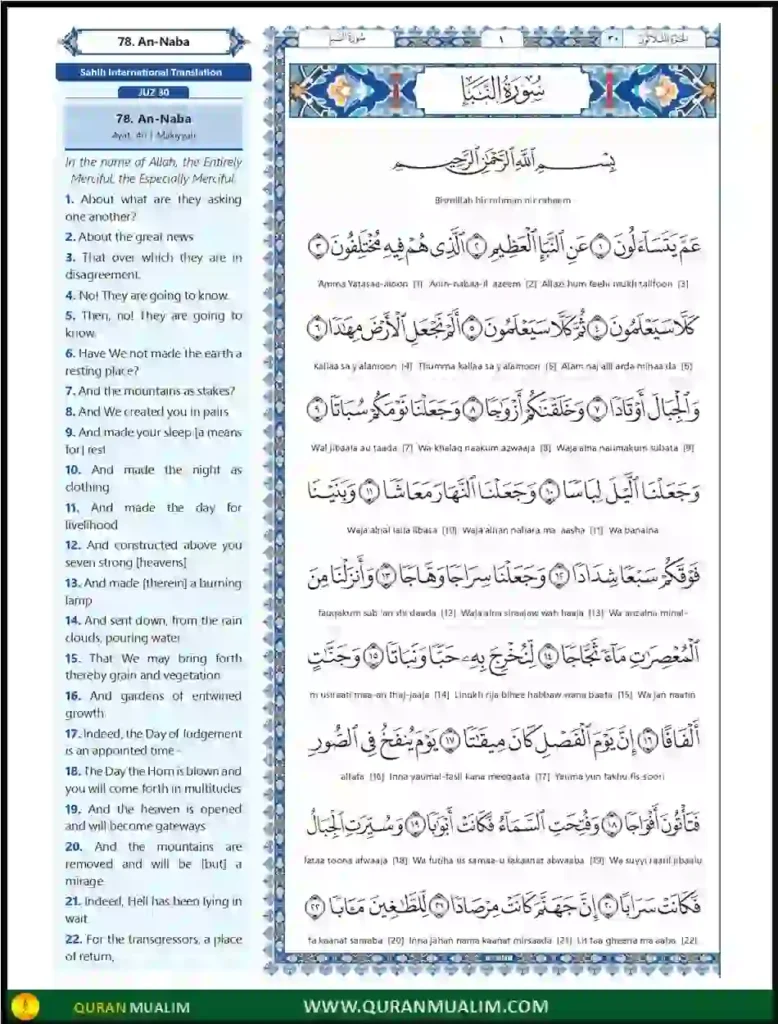 78. An-Naba
Sahih International Translation
JUZ 30
78. An-Naba
Ayat. 40 | Makiyyah
In the name of Allah, the Entirely
Merciful, the Especially Merciful.
1. About what are they asking
one another?
2. About the great news
3. That over which they are in
disagreement.
4. No! They are going to know.
5. Then, no! They are going to
know.
6. Have We not made the earth a
resting place?
7. And the mountains as stakes?
8. And We created you in pairs
9. And made your sleep [a means
for] rest
10. And made the night as
clothing
11. And made the day for
livelihood
12. And constructed above you
seven strong [heavens]
13. And made [therein] a burning
lamp
14. And sent down, from the rain
clouds, pouring water
15. That We may bring forth
thereby grain and vegetation
16. And gardens of entwined
growth
17. Indeed, the Day of Judgement
is an appointed time -
18. The Day the Horn is blown and
you will come forth in multitudes
19. And the heaven is opened
and will become gateways
20. And the mountains are
removed and will be [but] a
mirage.
21. Indeed, Hell has been lying in
wait
22. For the transgressors, a place
of return,
١
٣٠
سُورَةُ النَّبَإِ
بِسْمِ اللَّهِ الرَّحْمَٰنِ الرَّحِيمِ
Bismillah hir rahman nir raheem
عَمَّ يَتَسَآءَلُونَ ١ عَنِ ٱلنَّبَإِ ٱلْعَظِيمِ ٢ ٱلَّذِى هُمْ فِيهِ مُخْتَلِفُونَ ٣
'Amma Yatasaa-aloon [1] 'Anin-nabaa-il 'azeem [2] Allazi hum feehi mukh talifoon [3]
كَلَّا سَيَعْلَمُونَ ٤ ثُمَّ كَلَّا سَيَعْلَمُونَ ٥ أَلَمْ نَجْعَلِ ٱلْأَرْضَ مِهَٰدًا ٦
Kallaa sa y'alamoon [4] Thumma kallaa sa y'alamoon [5] Alam naj'alil arda mihaa da [6]
وَٱلْجِبَالَ أَوْتَادًا ٧ وَخَلَقْنَٰكُمْ أَزْوَٰجًا ٨ وَجَعَلْنَا نَوْمَكُمْ سُبَاتًا ٩
Wal jibaala au taada [7] Wa khalaq naakum azwaaja [8] Waja'alna naumakum subata [9]
وَجَعَلْنَا ٱلَّيْلَ لِبَاسًا ١٠ وَجَعَلْنَا ٱلنَّهَارَ مَعَاشًا ١١ وَبَنَيْنَا
Waja'alnal laila libasa [10] Waja'alnan nahara ma 'aasha [11] Wa banaina
فَوْقَكُمْ سَبْعًا شِدَادًا ١٢ وَجَعَلْنَا سِرَاجًا وَهَّاجًا ١٣ وَأَنزَلْنَا مِنَ
fauqakum sab 'an shi daada [12] Waja'alna siraajaw wah haaja [13] Wa anzalna minal-
ٱلْمُعْصِرَٰتِ مَآءً ثَجَّاجًا ١٤ لِّنُخْرِجَ بِهِۦ حَبًّا وَنَبَاتًا ١٥ وَجَنَّٰتٍ
m'usiraati maa-an thaj-jaaja [14] Linukh rija bihee habbaw wana baata [15] Wa jan naatin
أَلْفَافًا ١٦ إِنَّ يَوْمَ ٱلْفَصْلِ كَانَ مِيقَٰتًا ١٧ يَوْمَ يُنفَخُ فِى ٱلصُّورِ
alfafa [16] Inna yaumal-fasli kana meeqaata [17] Yauma yun fakhu fis-soori
فَتَأْتُونَ أَفْوَاجًا ١٨ وَفُتِحَتِ ٱلسَّمَآءُ فَكَانَتْ أَبْوَٰبًا ١٩ وَسُيِّرَتِ ٱلْجِبَالُ
fataa toona afwaaja [18] Wa futiha tis samaa-u fakaanat abwaaba [19] Wa suyyi raatil jibaalu
فَكَانَتْ سَرَابًا ٢٠ إِنَّ جَهَنَّمَ كَانَتْ مِرْصَادًا ٢١ لِّلطَّٰغِينَ مَـَٔابًا ٢٢
fa kaanat saraaba [20] Inna jahan nama kaanat mirsaada [21] Lit taa gheena ma aaba [22]
QURAN MUALIM
WWW.QURANMUALIM.COM